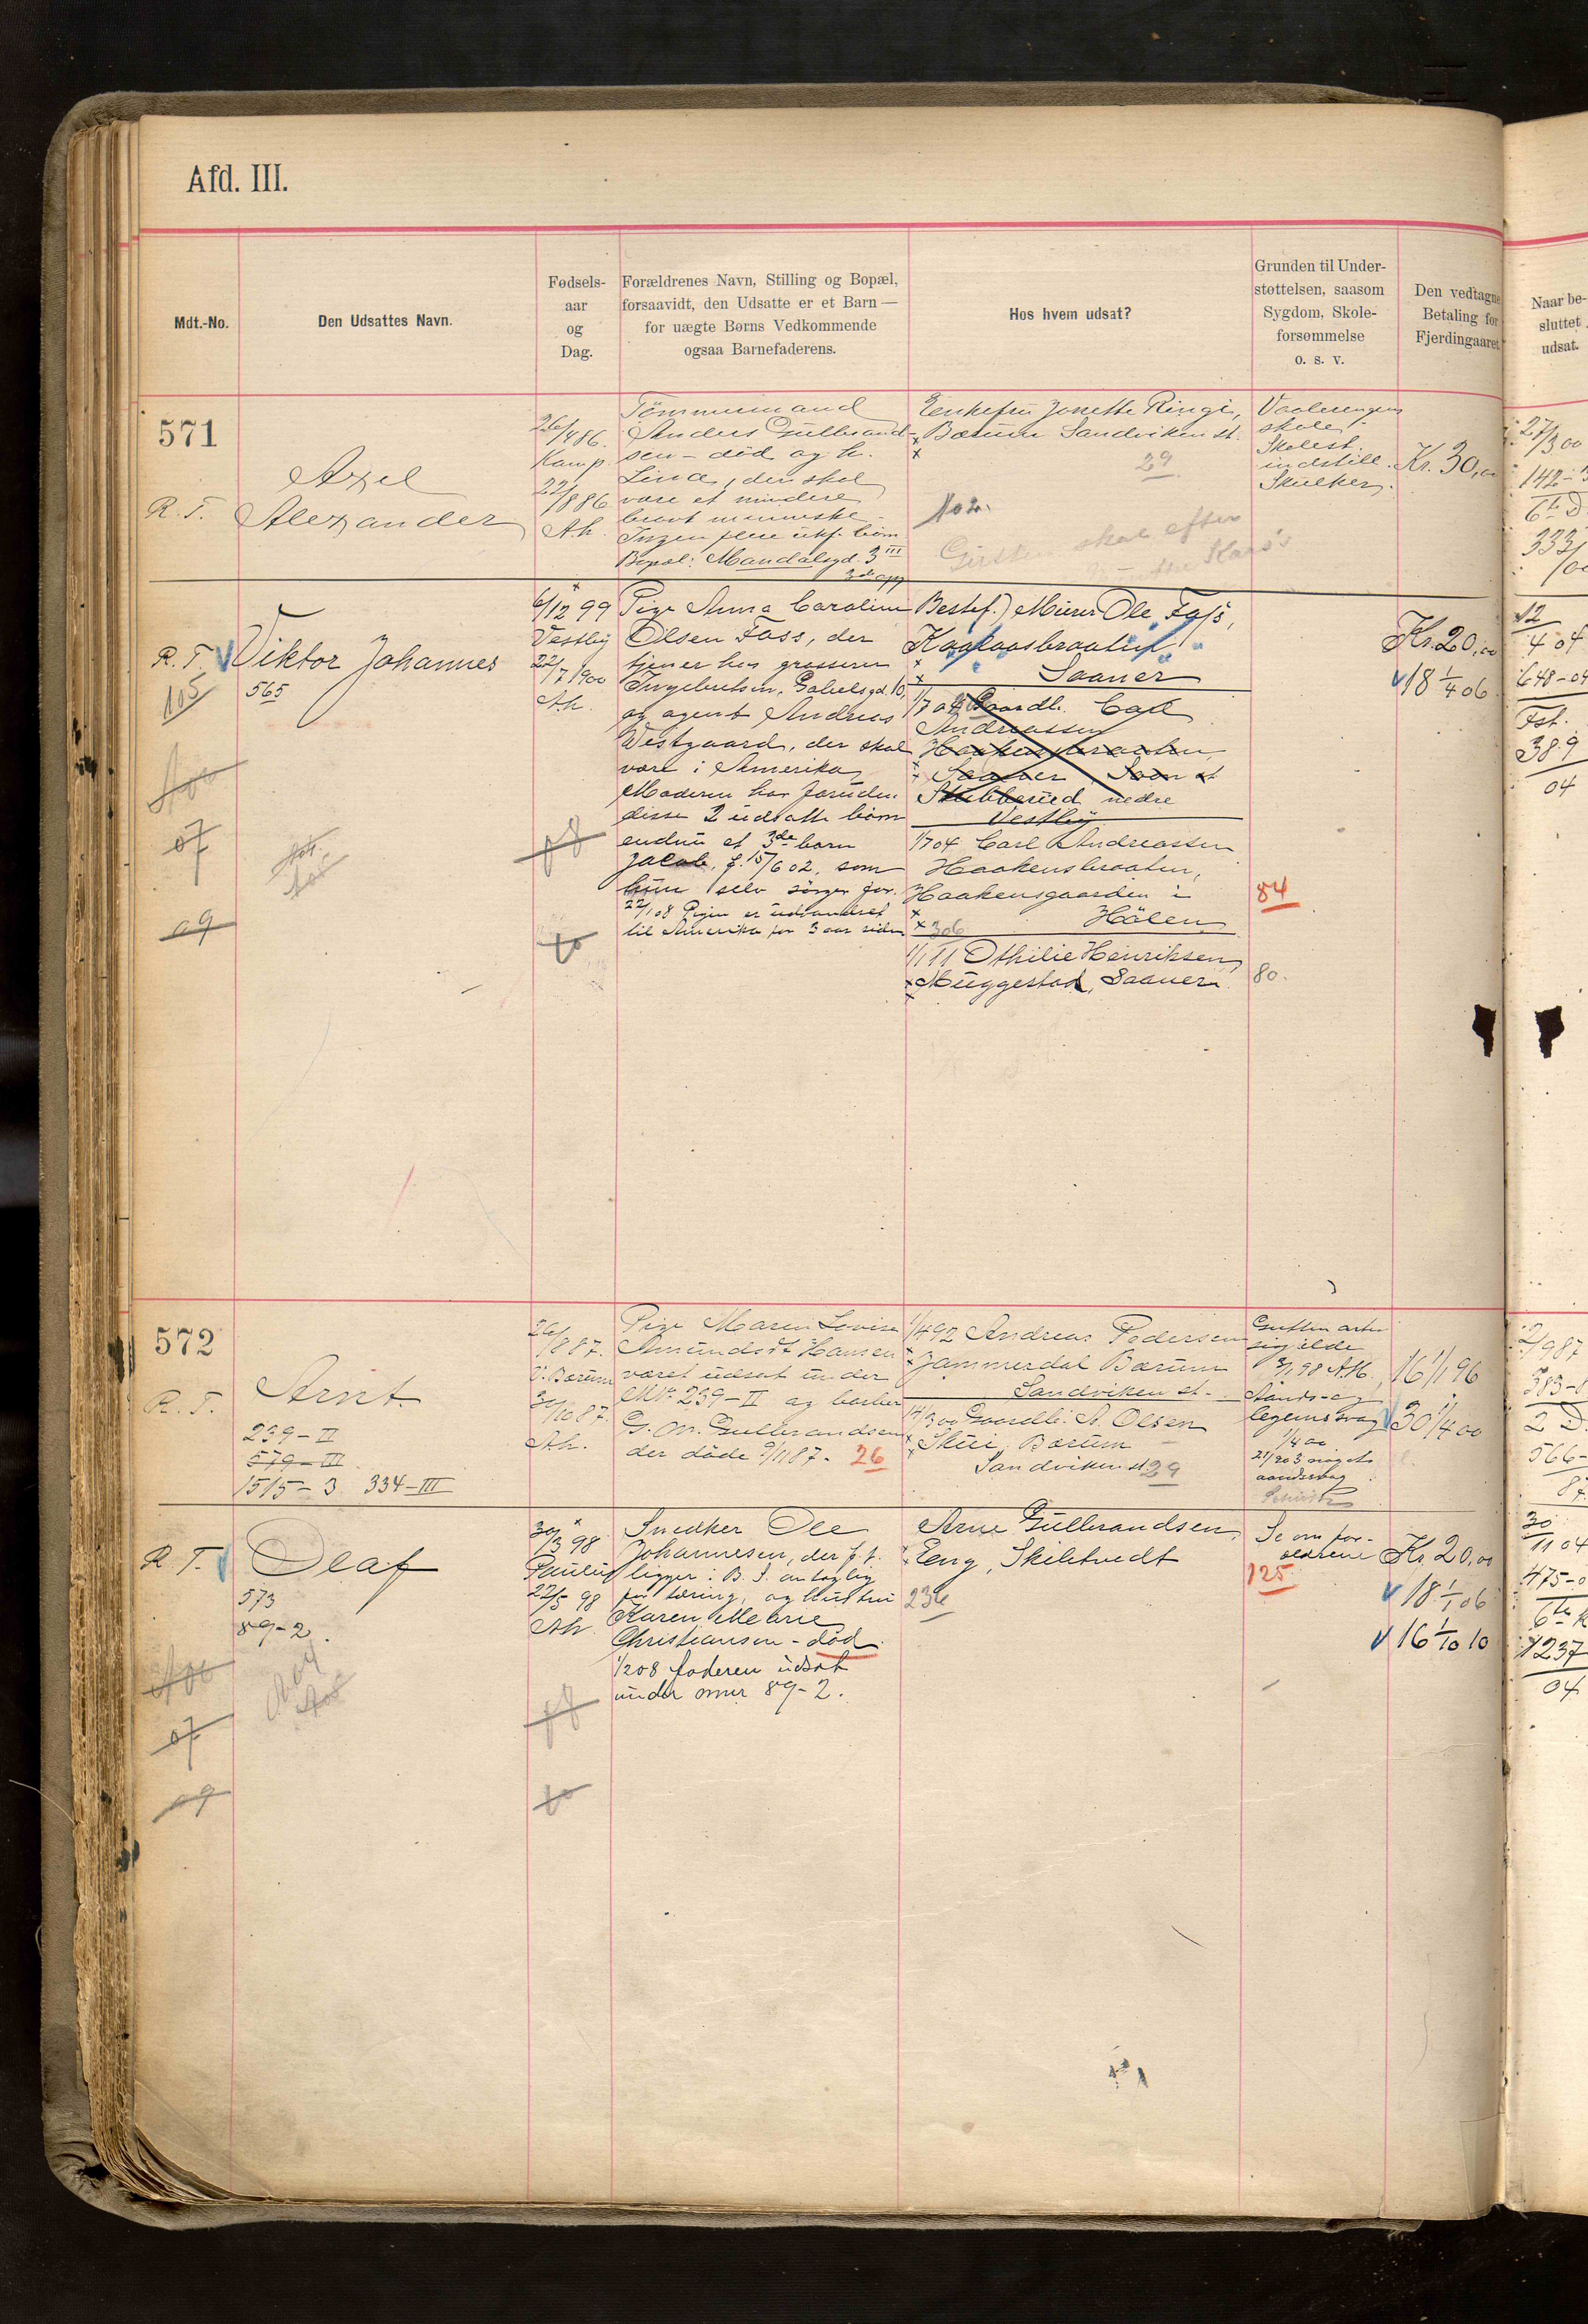 Afd. III.
Mdt.-No.
Den Udsattes Navn.
Fødsels-
aar
og
Dag.
Forældrenes Navn, Stilling og Bopæl,
forsaavidt, den Udsatte er et Barn —
for uægte Børns Vedkommende
ogsaa Barnefaderens.
Hos hvem udsat?
Grunden til Under-
støttelsen, saasom
Sygdom, Skole-
forsømmelse
o. s. v.
Den vedtagne
Betaling for
Fjerdingaaret
Naar be-
sluttet
udsat.
571
R. T.
Axel
Alexander
26/4 86.
Kamp.
22/8 86
A.h.
Tømmermand
Anders Gulbrand-
sen - død og h.
Lina, den skal
være et mindre
bravt menneske
Ingen flere ukf. børn
Bopæl: Mandalsgd. 3 III
Enkefru Jonette Ringi,
Bærum Sandviken st.
29
Gutten skal efter
Vaalerengens
skole.
Skolest.
indstill.
Skulker.
Kr. 30,00
27/3 00
142-
R. T.
105
Viktor Johannes
565
6/12 99
Vestby
22/7 1900
A.h.
Pige Anna Caroline
Olsen Foss, der
tjener hos grosserer
Ingebretsen, Gabelsgd. 10,
og agent Andreas
Vestgaard, der skal
være i Amerika
Moderen har foruden
disse 2 udsatte børn
endnu et 3de barn
Jacob, f. 15/6 02, som
hun selv sørger for.
22/1 08 Pigen er udvandret
til Amerika for 3 aar siden
Bestef.) Murer Ole Foss,
Saaner
1/7 04 Gaardb. Carl
Andreassen
Haakensbraaten,
Saaner Soon st
Stubberud nedre
Vestby
1/7 04 Carl Andreassen
Haakensbraaten,
Haakensgaarden i
Hölen
306
1/1 11 Othilie Henriksen
Muggestad, Saaner
84
80.
Kr. 20,00
18 1/4 06
12
4 04
648-04
Fst.
389
04
07
09
572
R. T.
Arnt.
239-II
579-III
1515-3 334-III
26/8 87.
V. Bærum
30/10 87.
A.h.
Pige Maren Lovise
Amundsdt Hansen
været udsat under
No 239-II og barber
G. M. Gulbrandsen
der døde 9/11 87. 26
1/4 92 Andreas Pedersen
Jammerdal Bærum
Sandviken st.
14/3 00 Gaardb. A. Olsen
Skui, Bærum
Sandviken st 29
Gutten arter
sig ilde
3/1 98 A.H.
Aands- og
legemssvag
1/4 00
21/2 03 noget
aandssvag
16 1/1 96
30 1/4 00
2/9 87
383-8
566-
87
R. T.
Olaf
573
89-2.
30/3 98
Paulus
22/5 98
A.h.
Snedker Ole
Johannesen, der f. t.
ligger i B. S. antagelig
for tæring, og hustru
Karen Marie
Christiansen - død.
1/2 08 faderen udsat
under omr 89-2.
Arne Gulbrandsen
Eeng, Skibtvedt
236
Se om for-
ældrene
125
Kr. 20,00
18 1/1 06
16 1/10 10
30
11 04
475-0
1237
04
07
09